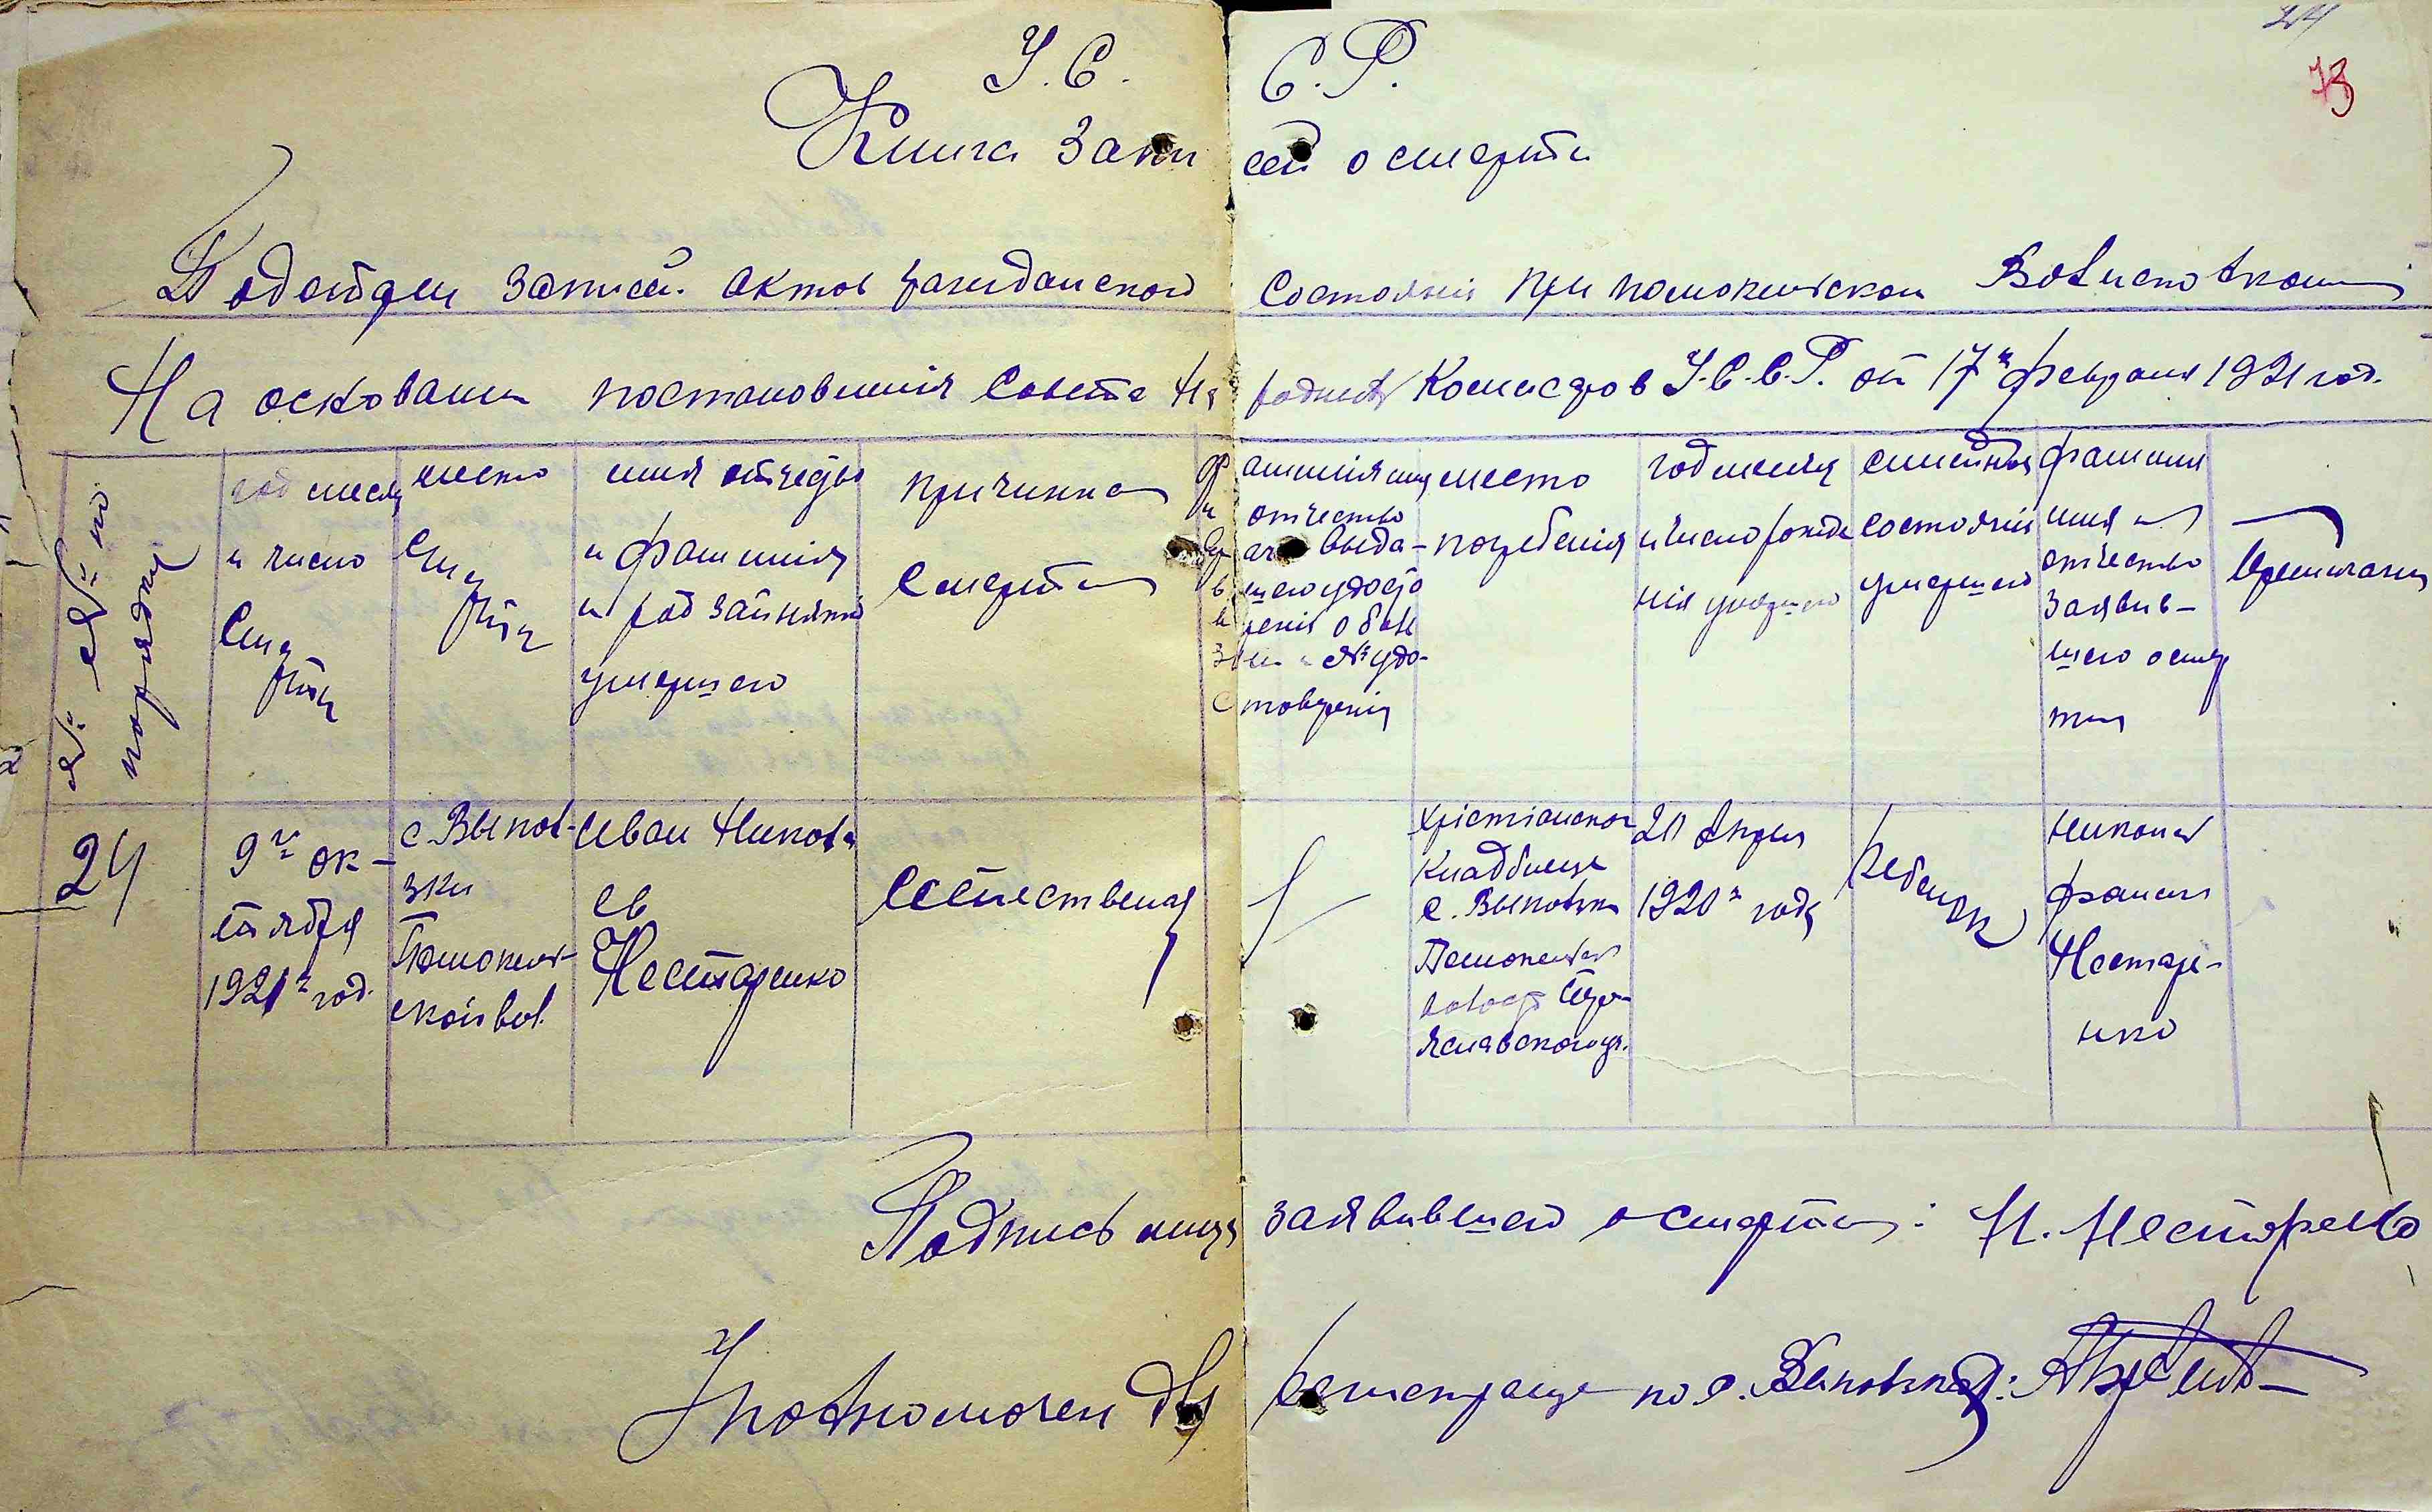 24
73
У.С.С.Р.
Книга Записей о смерти
Подотдел записей актов гражданского Состояния при Помоклыской Волисполкоме
На основании постановления Совета Народных Комисаров У.С.С.Р. от 17го февраля 1921 год.
№№ по порядку
год месяц и число смерти
место смерти
имя отчество и фамилия и род занятий умершего
причина смерти
Фамилия имя и отчество врача выдавшего удостоверения о болезни и № удостоверения
место погребения
год месяц и число рождения умершего
семейное состояния умершего
фамилия имя и отчество заявившего о смерти
Примечание
24
9го октября 1921го год.
с. Выповзки Помокельской вол.
Иван Николаев Нестеренко
Естественная
Христианское Кладбище с. Выповзки Помокельской волости Переяславского у.
20 Апреля 1920го года
Ребенок
Николай Нестеренко
Подпись лица заявившего о смерти: Н. Нестеренко
Уполномочен для регистрации по с. Выповзки: